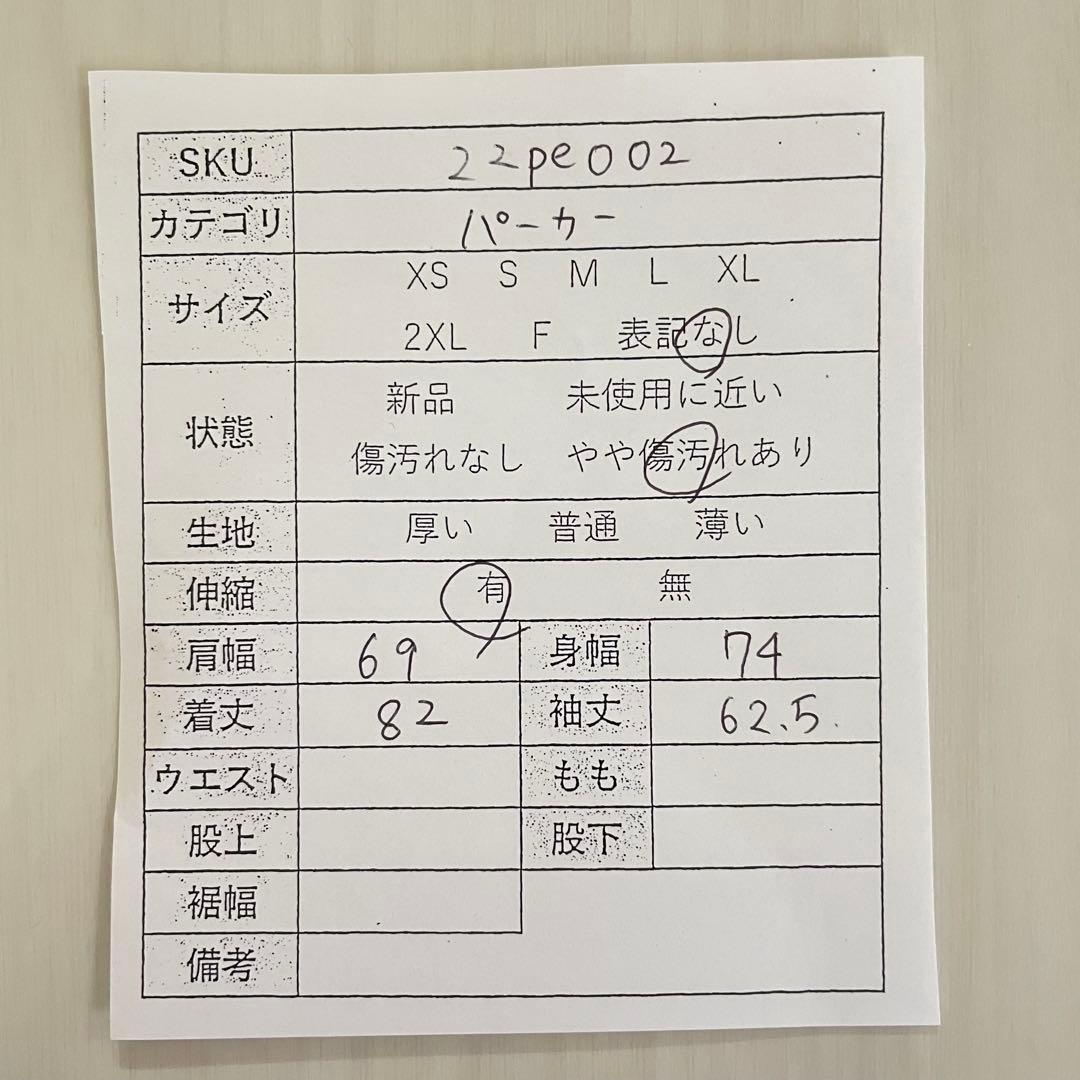 SKU 22pe002
カテゴリ パーカー
サイズ XS S M L XL
2XL F 表記なし
状態 新品 未使用に近い
傷汚れなし やや傷汚れあり
生地 厚い 普通 薄い
伸縮 有 無
肩幅 69 身幅 74
着丈 82 袖丈 62.5
ウエスト もも
股上 股下
裾幅
備考